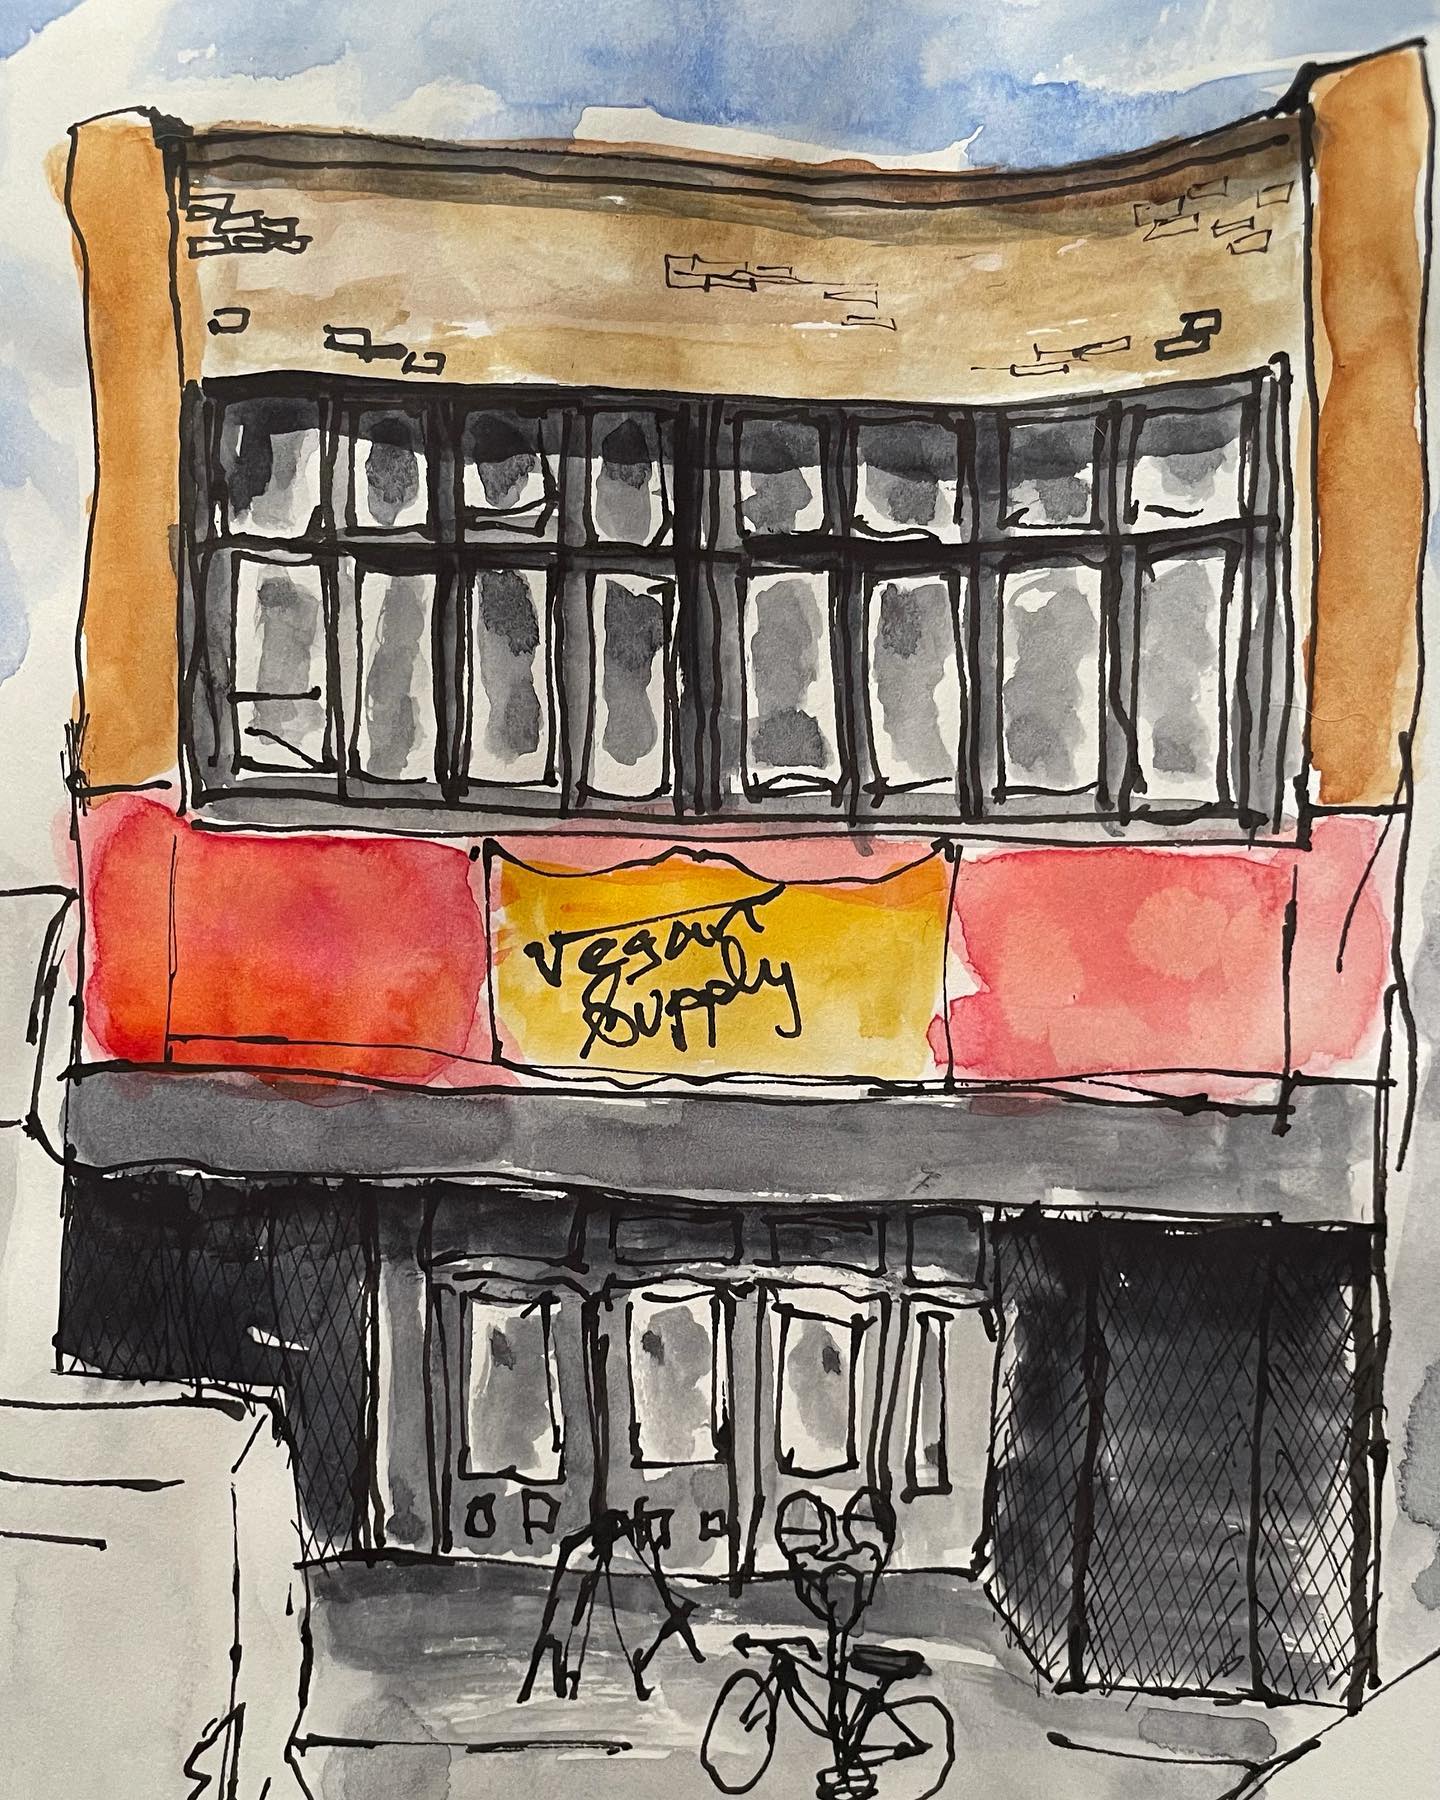 Vegan
Supply